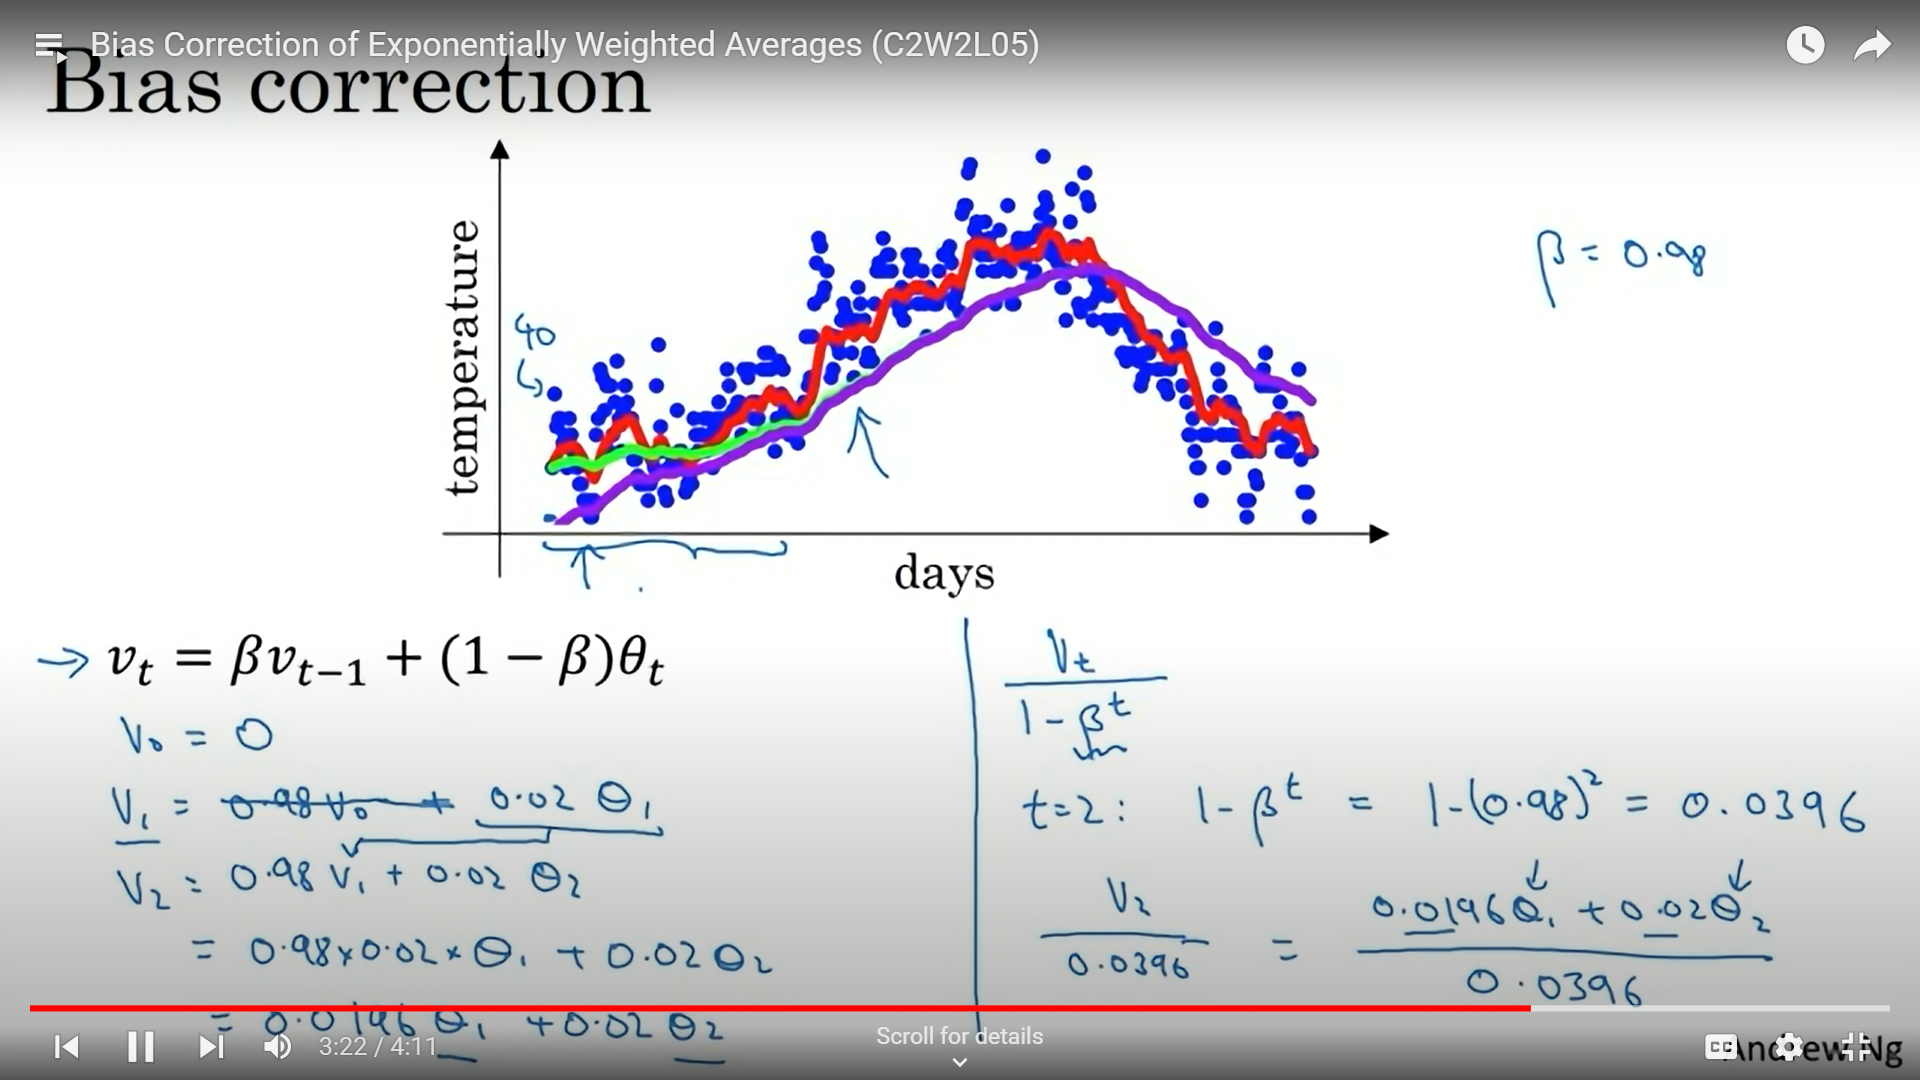 Bias Correction of Exponentially Weighted Averages (C2W2L05)
Bias correction
temperature
40
β = 0.98
days
→ vₜ = βvₜ₋₁ + (1 − β)θₜ
V₀ = 0
V₁ = 0.98 V₀ + 0.02 θ₁
V₂ = 0.98 V₁ + 0.02 θ₂
= 0.98 x 0.02 x θ₁ + 0.02 θ₂
= 0.0196 θ₁ + 0.02 θ₂
Vₜ
1 - βᵗ
t=2: 1 - βᵗ = 1 - (0.98)² = 0.0396
V₂ = 0.0196 θ₁ + 0.02 θ₂
0.0396 0.0396
3:22 / 4:11
Scroll for details
CC
Andrew Ng